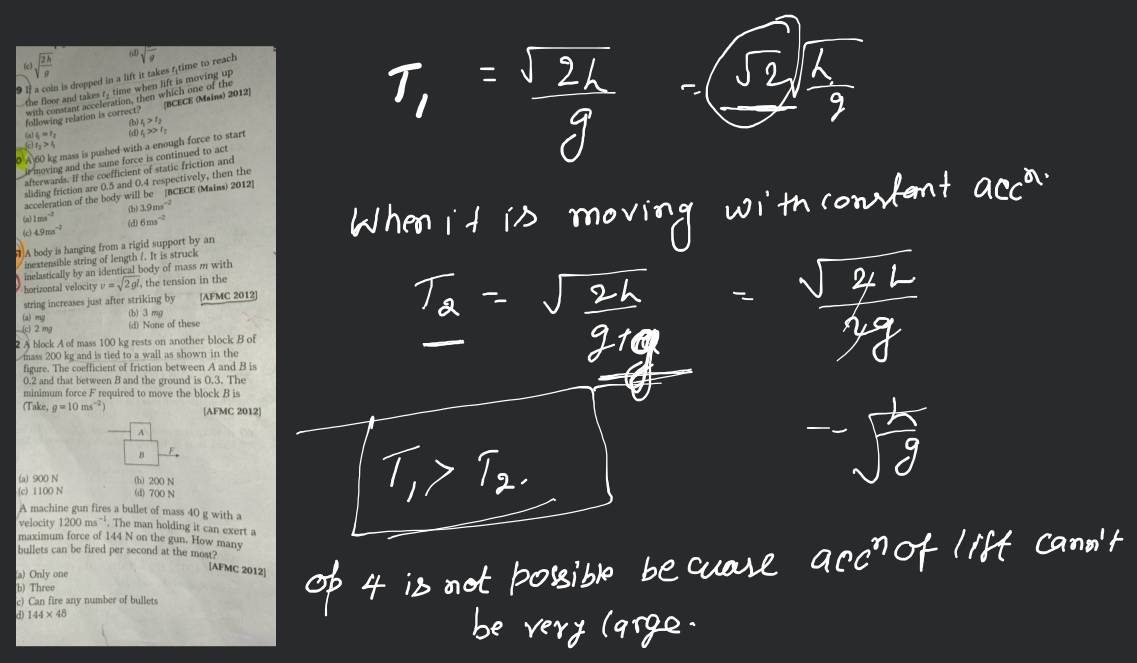 (c) √2h/g
(d) √
9 If a coin is dropped in a lift it takes t₁ time to reach
the floor and takes t₂ time when lift is moving up
with constant acceleration, then which one of the
following relation is correct? [BCECE (Mains) 2012]
(a) t₁ = t₂ (b) t₁ > t₂
(c) t₂ > t₁ (d) t₁ >> t₂
0 A 60 kg mass is pushed with a enough force to start
it moving and the same force is continued to act
afterwards. If the coefficient of static friction and
sliding friction are 0.5 and 0.4 respectively, then the
acceleration of the body will be [BCECE (Mains) 2012]
(a) 1 ms⁻² (b) 3.9 ms⁻²
(c) 4.9 ms⁻² (d) 6 ms⁻²
1 A body is hanging from a rigid support by an
inextensible string of length l. It is struck
inelastically by an identical body of mass m with
horizontal velocity v = √2gl, the tension in the
string increases just after striking by [AFMC 2012]
(a) mg (b) 3 mg
(c) 2 mg (d) None of these
2 A block A of mass 100 kg rests on another block B of
mass 200 kg and is tied to a wall as shown in the
figure. The coefficient of friction between A and B is
0.2 and that between B and the ground is 0.3. The
minimum force F required to move the block B is
(Take, g = 10 ms⁻²) [AFMC 2012]
A
B F
(a) 900 N (b) 200 N
(c) 1100 N (d) 700 N
A machine gun fires a bullet of mass 40 g with a
velocity 1200 ms⁻¹. The man holding it can exert a
maximum force of 144 N on the gun. How many
bullets can be fired per second at the most?
[AFMC 2012]
a) Only one
b) Three
c) Can fire any number of bullets
d) 144 × 48
T₁ = √2h/g = √2 √h/g
When it is moving with constent accⁿ.
T₂ = √2h/g+g = √2h/2g
= √h/g
T₁ > T₂.
op 4 is not possible becuase accⁿ of lift cann't
be very large.